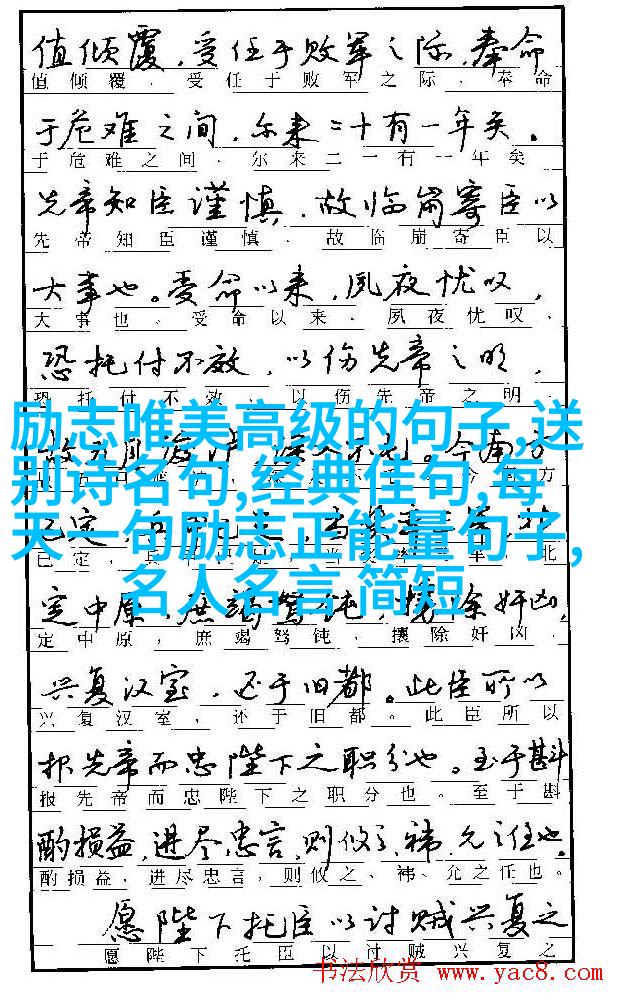 值倾覆，受任于败军之际，奉命
值倾覆，受任于败军之际，奉命
于危难之间，尔来二十有一年矣。
于危难之间，尔来二一有一年矣
先帝知臣谨慎，故临崩寄臣以
先帝知臣谨慎，故临崩寄臣以
大事也。受命以来，夙夜忧叹，
大事也。受命以来，夙夜忧叹，
恐托付不效，以伤先帝之明，
恐托付不效，以伤先帝之明
励志唯美高级的句子,送
别诗名句,经典佳句,每
天一句励志正能量句子,
名人名言 简短
今南方
已定，
北
定中原，庶竭驽钝，攘除奸凶，
定中原，庶竭驽钝，攘除奸凶，
兴复汉室，还于旧都。此臣所以
兴复汉室，还于旧都。此臣所以
报先帝而忠陛下之职分也。至于斟
报先帝而忠陛下之职分也。至于斟
酌损益，进尽忠言，则攸之、祎、允之任也。
酌损益，进尽忠言，则攸之、祎、允之任也。
愿陛下托臣以讨贼兴复之
愿陛下托臣以讨贼兴复之
书法欣赏 www.yac8.com